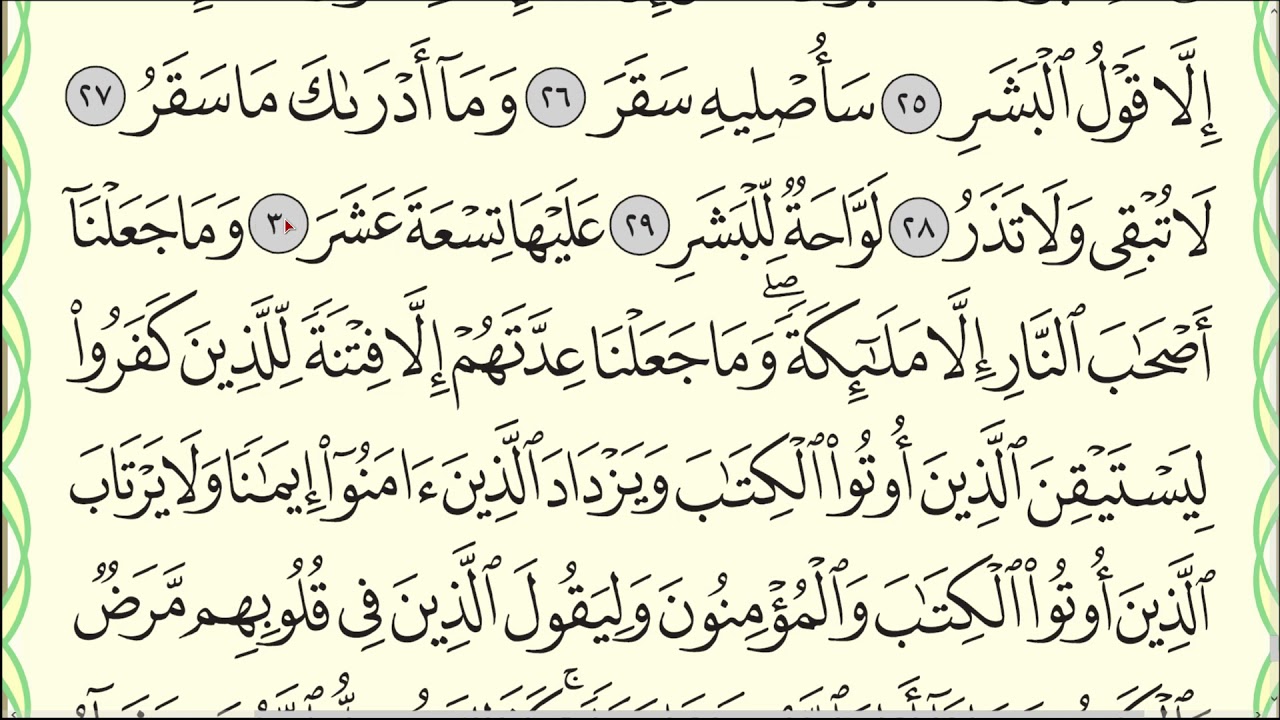 إِلَّا قَوْلُ ٱلْبَشَرِ ٢٥ سَأُصْلِيهِ سَقَرَ ٢٦ وَمَآ أَدْرَىٰكَ مَا سَقَرُ ٢٧
لَا تُبْقِى وَلَا تَذَرُ ٢٨ لَوَّاحَةٌ لِّلْبَشَرِ ٢٩ عَلَيْهَا تِسْعَةَ عَشَرَ ٣٠ وَمَا جَعَلْنَآ
أَصْحَـٰبَ ٱلنَّارِ إِلَّا مَلَـٰٓئِكَةً ۖ وَمَا جَعَلْنَا عِدَّتَهُمْ إِلَّا فِتْنَةً لِّلَّذِينَ كَفَرُوا۟
لِيَسْتَيْقِنَ ٱلَّذِينَ أُوتُوا۟ ٱلْكِتَـٰبَ وَيَزْدَادَ ٱلَّذِينَ ءَامَنُوٓا۟ إِيمَـٰنًا وَلَا يَرْتَابَ
ٱلَّذِينَ أُوتُوا۟ ٱلْكِتَـٰبَ وَٱلْمُؤْمِنُونَ وَلِيَقُولَ ٱلَّذِينَ فِى قُلُوبِهِم مَّرَضٌ